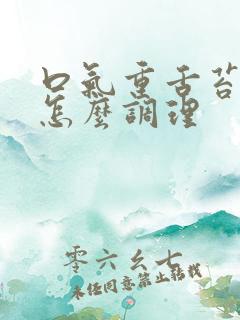 口氣重舌苔
怎麼調理
零六幺七
未經同意禁止轉載